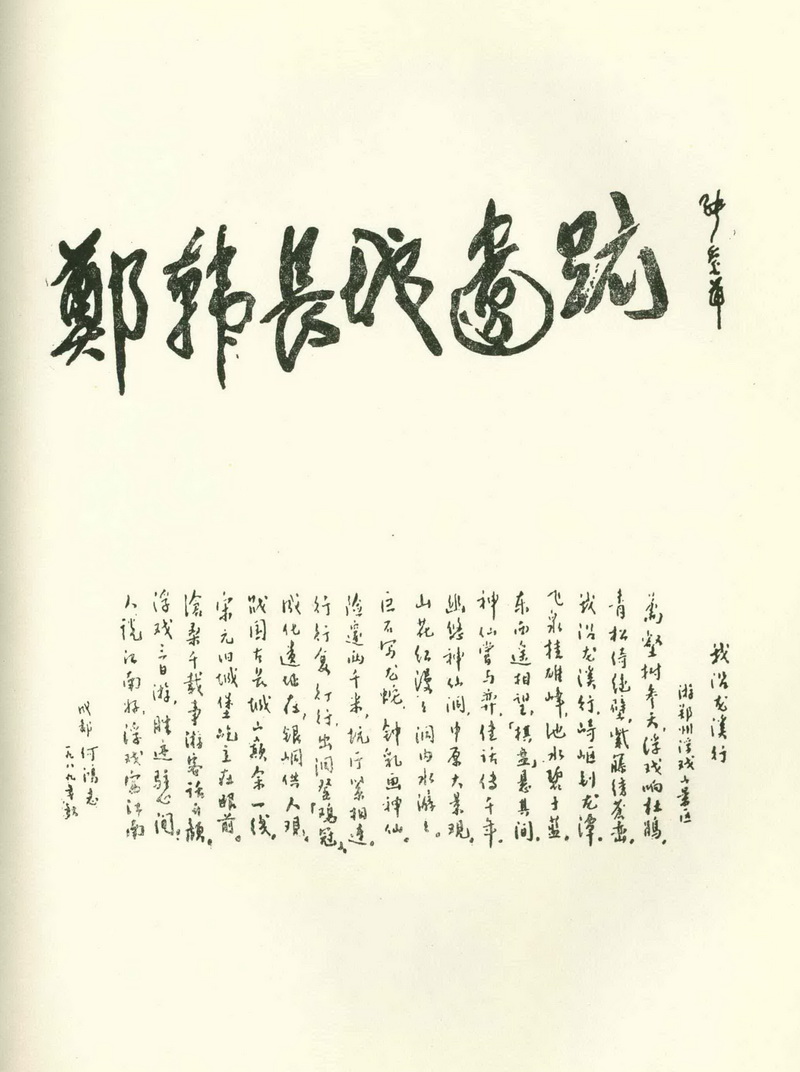 鄭韓長城遺跡
我沿龙溪行
游郑州浮戏山景区
万壑树参天，浮戏响杜鹃，
青松倚绝壁，紫藤绕苍峦。
我沿龙溪行，崎岖到龙潭，
飞泉挂雄峰，池水碧于蓝。
东西遥相望，「棋盘」悬其间，
神仙尝与弈，佳话传千年。
幽悠神仙洞，中原大景观，
山花红漫漫，洞内水潺潺。
巨石写龙蛇，钟乳画神仙。
逶迤两千米，坑厅紧相连。
行行复行行，出洞登「鸡冠」，
成化遗址在，银峒供人观。
战国古长城，山巅余一线，
宋元旧城堡，屹立在眼前。
沧桑千载事，游客话
浮戏三日游，胜迹驻心间，
人说江南好，浮戏寓江南
成都 何鸿志
一九八九年